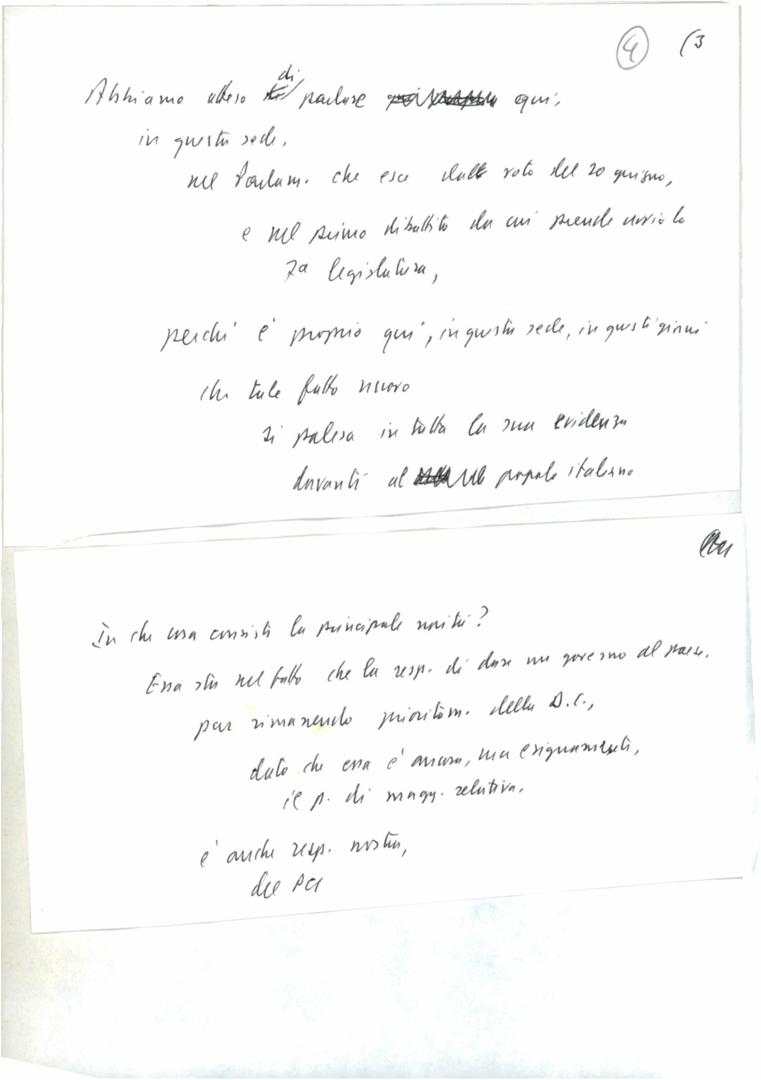 4 (3
di
Abbiamo atteso parlare qui,
in questa sede,
nel Parlam. che esce dal voto del 20 giugno,
e nel primo dibattito da cui prende avvio la
7a legislatura,
perché è proprio qui, in questa sede, in questi giorni
che tale fatto nuovo
si palesa in tutta la sua evidenza
davanti al popolo italiano
In che cosa consiste la principale novità?
Essa sta nel fatto che la resp. di dare un governo al paese,
pur rimanendo prioritam. della D.C.,
dato che essa è ancora, ma esiguamente,
il p. di magg. relativa,
è anche resp. nostra,
del PCI